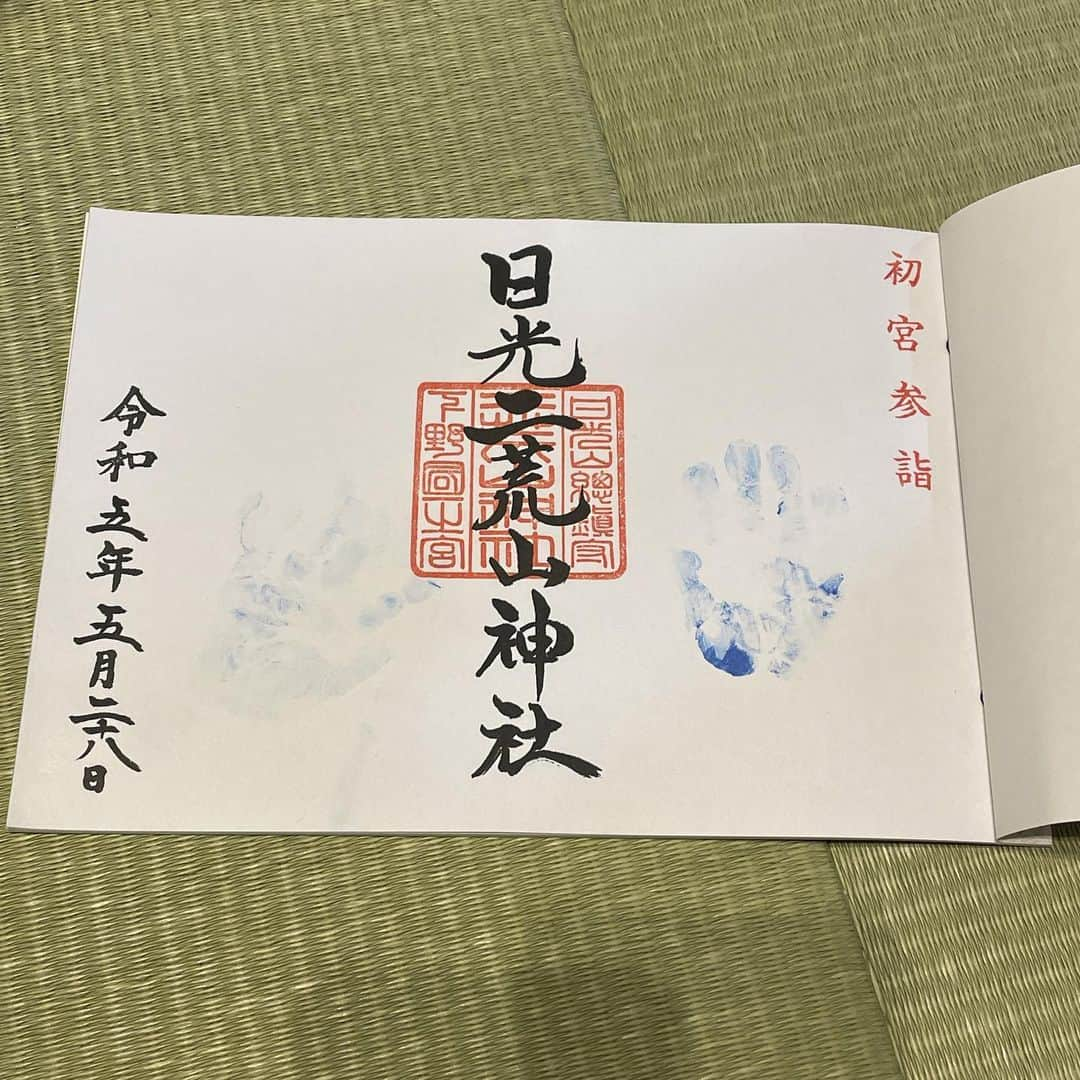 初宮参詣
日光山總鎮守
二荒山神社
下野國一之宮
日光二荒山神社
令和五年五月二十八日